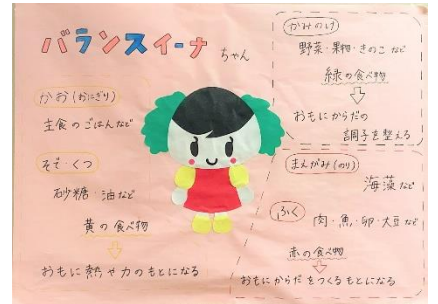 バランスイーナちゃん
かお(おにぎり)
主食のごはんなど
そで・くつ
砂糖・油など
黄の食べ物
おもに熱や力のもとになる
かみのけ
野菜・果物・きのこなど
緑の食べ物
おもにからだの
調子を整える
まえがみ(のり)
海藻など
ふく
肉・魚・卵・大豆など
赤の食べ物
おもにからだをつくるもとになる